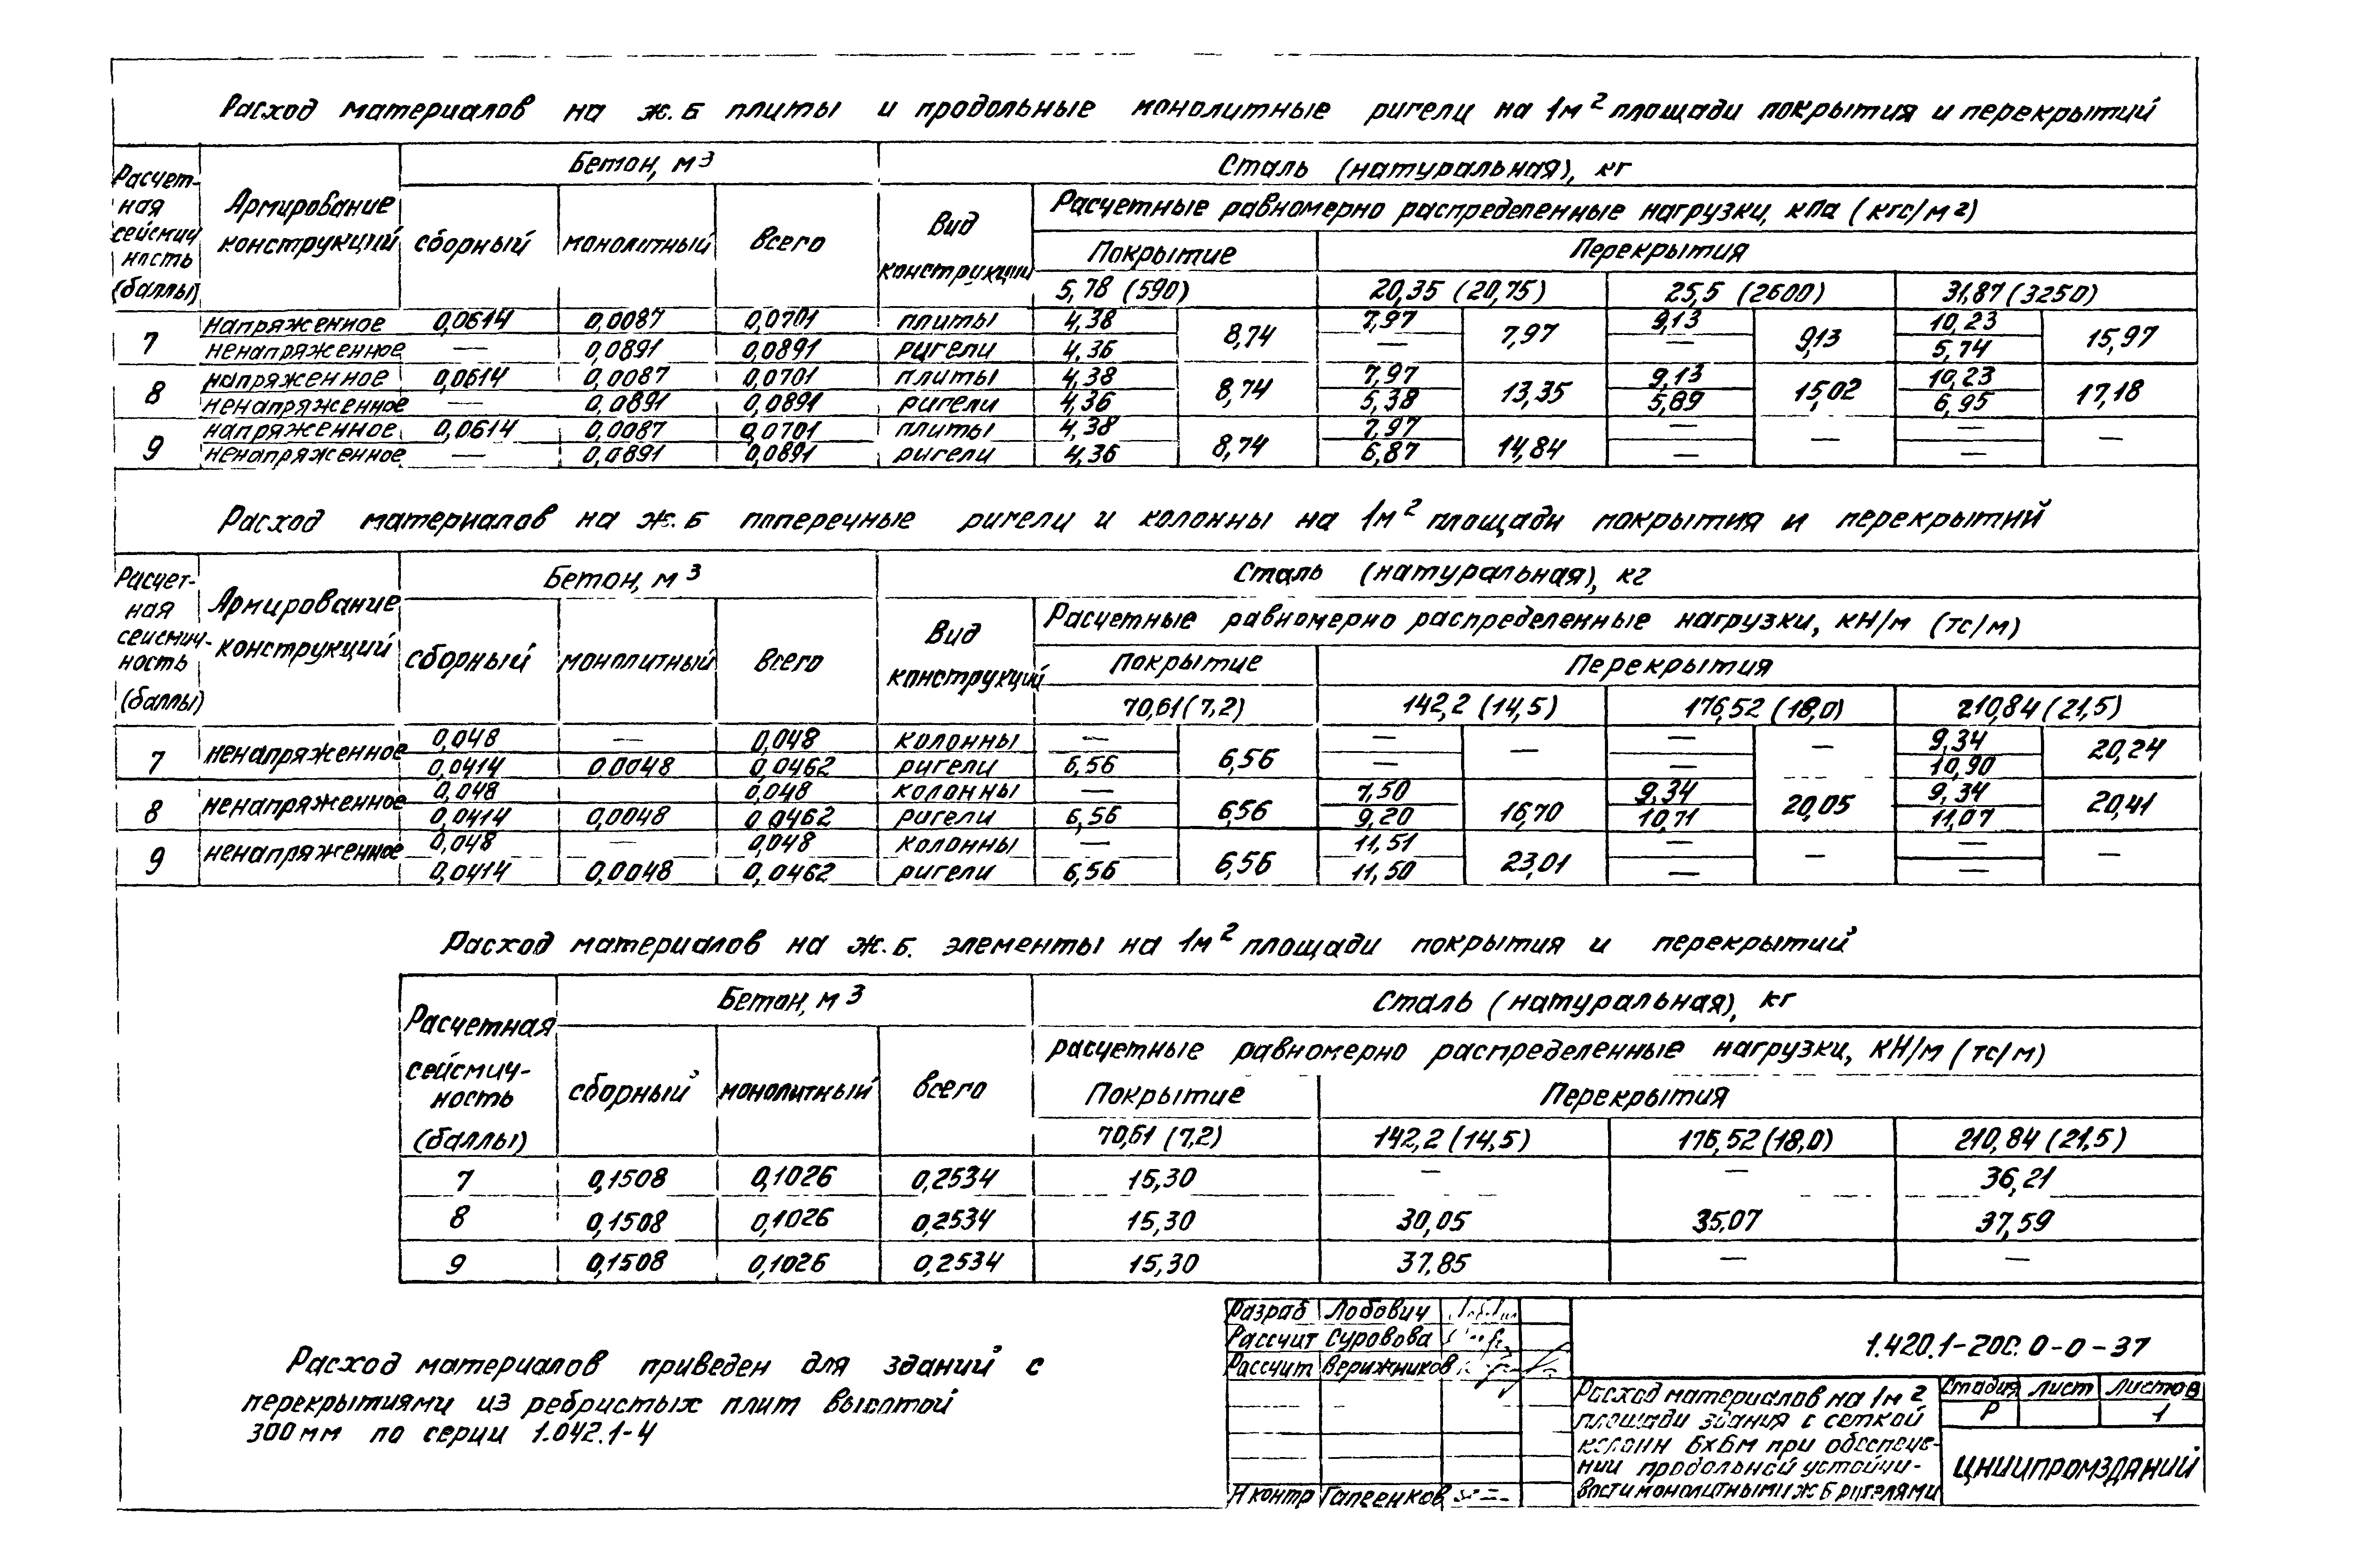 Расход материалов на ж.б плиты и продольные монолитные ригели на 1м² площади покрытия и перекрытий
Расчет-
ная
сейсмич
ность
(баллы)
Армирование
конструкций
Бетон, м³
сборный
монолитный
всего
Вид
конструкций
Сталь (натуральная), кг
Расчетные равномерно распределенные нагрузки, кПа (кгс/м²)
Покрытие
Перекрытия
5,78 (590)
20,35 (20,75)
25,5 (2600)
31,87 (3250)
7
напряженное 0,0614 0,0087 0,0701 плиты 4,38 8,74 7,97 7,97 9,13 9,13 10,23 15,97
ненапряженное — 0,0891 0,0891 ригели 4,36 — — 5,74
8
напряженное 0,0614 0,0087 0,0701 плиты 4,38 8,74 7,97 13,35 9,13 15,02 10,23 17,18
ненапряженное — 0,0891 0,0891 ригели 4,36 5,38 5,89 6,95
9
напряженное 0,0614 0,0087 0,0701 плиты 4,38 8,74 7,97 14,84 — — — —
ненапряженное — 0,0891 0,0891 ригели 4,36 6,87 — —
Расход материалов на ж.б поперечные ригели и колонны на 1м² площади покрытия и перекрытий
Расчет-
ная
сейсмич-
ность
(баллы)
Армирование
конструкций
Бетон, м³
сборный
монолитный
всего
Вид
конструкций
Сталь (натуральная), кг
Расчетные равномерно распределенные нагрузки, кН/м (тс/м)
Покрытие
Перекрытия
70,61 (7,2)
142,2 (14,5)
176,52 (18,0)
210,84 (21,5)
7 ненапряженное
0,048 — 0,048 колонны — 6,56 — — — — 9,34 20,24
0,0414 0,0048 0,0462 ригели 6,56 — — 10,90
8 ненапряженное
0,048 0,048 колонны — 6,56 7,50 16,70 9,34 20,05 9,34 20,41
0,0414 0,0048 0,0462 ригели 6,56 9,20 10,71 11,07
9 ненапряженное
0,048 — 0,048 колонны — 6,56 11,51 23,01 — — — —
0,0414 0,0048 0,0462 ригели 6,56 11,50 — —
Расход материалов на ж.б. элементы на 1м² площади покрытия и перекрытий
Расчетная
сейсмич-
ность
(баллы)
Бетон, м³
сборный
монолитный
всего
Сталь (натуральная), кг
расчетные равномерно распределенные нагрузки, кН/м (тс/м)
Покрытие
Перекрытия
70,61 (7,2)
142,2 (14,5)
176,52 (18,0)
210,84 (21,5)
7 0,1508 0,1026 0,2534 15,30 — — 36,21
8 0,1508 0,1026 0,2534 15,30 30,05 35.07 37,59
9 0,1508 0,1026 0,2534 15,30 37,85 — —
Расход материалов приведен для зданий с
перекрытиями из ребристых плит высотой
300 мм по серии 1.042.1-4
Разраб Лобович
Рассчит Суровова
Рассчит Верижников
Н контр Гапеенков
1.420.1-20С. 0-0-37
Расход материалов на 1м²
площади здания с сеткой
колонн 6х6м при обеспече-
нии продольной устойчи-
вости монолитными ж б ригелями
Стадия Лист Листов
Р 1
ЦНИИПРОМЗДАНИЙ